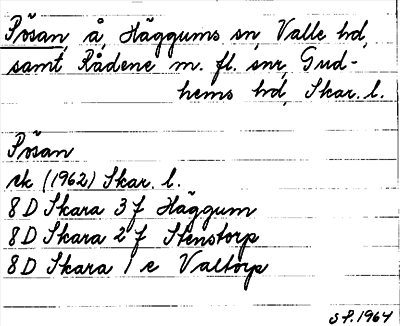 Pösan, å, Häggums sn, Valle hd,
samt Rådene m. fl. snr, Gud-
hems hd, Skar. l.
Pösan
rk (1962) Skar. l.
8 D Skara 3 f Häggum
8 D Skara 2 f Stenstorp
8 D Skara 1 e Valtorp
SP. 1964